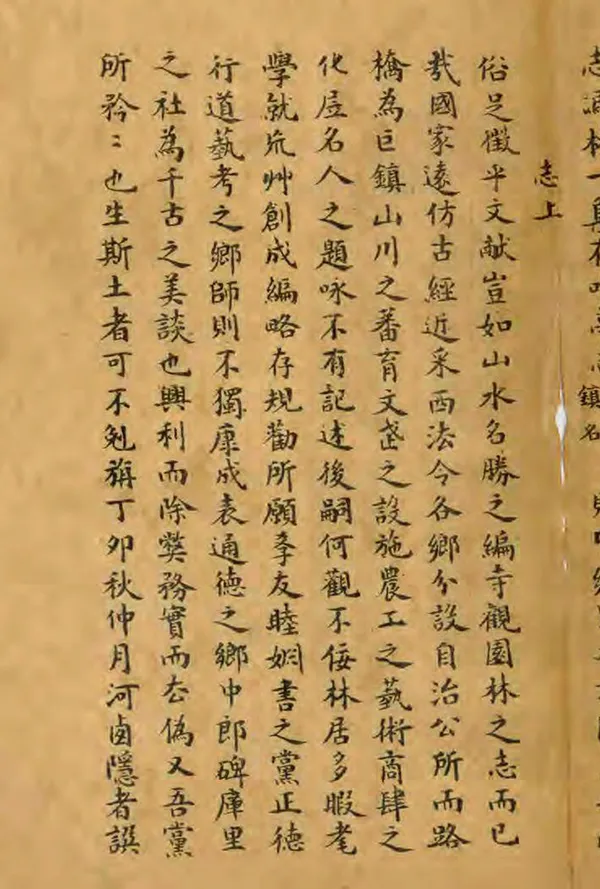 鎮名
志上
俗足徵乎文献豈如山水名勝之編寺觀園林之志而已
哉國家遠仿古經近采西法令各鄉分設自治公所而路
橋為巨鎮山川之蕃育文之設施農工之藝術商肆之
化居名人之題咏不有記述後嗣何觀不佞林居多暇耄
學就荒艸創成編略存規勸所願孝友睦婣書之黨正德
行道藝考之鄉師則不獨康成表通德之鄉中郎碑庫里
之社為千古之美談也興利而除獘務實而去偽又吾黨
所矜〻也生斯土者可不勉旃丁卯秋仲月河鹵隱者譔